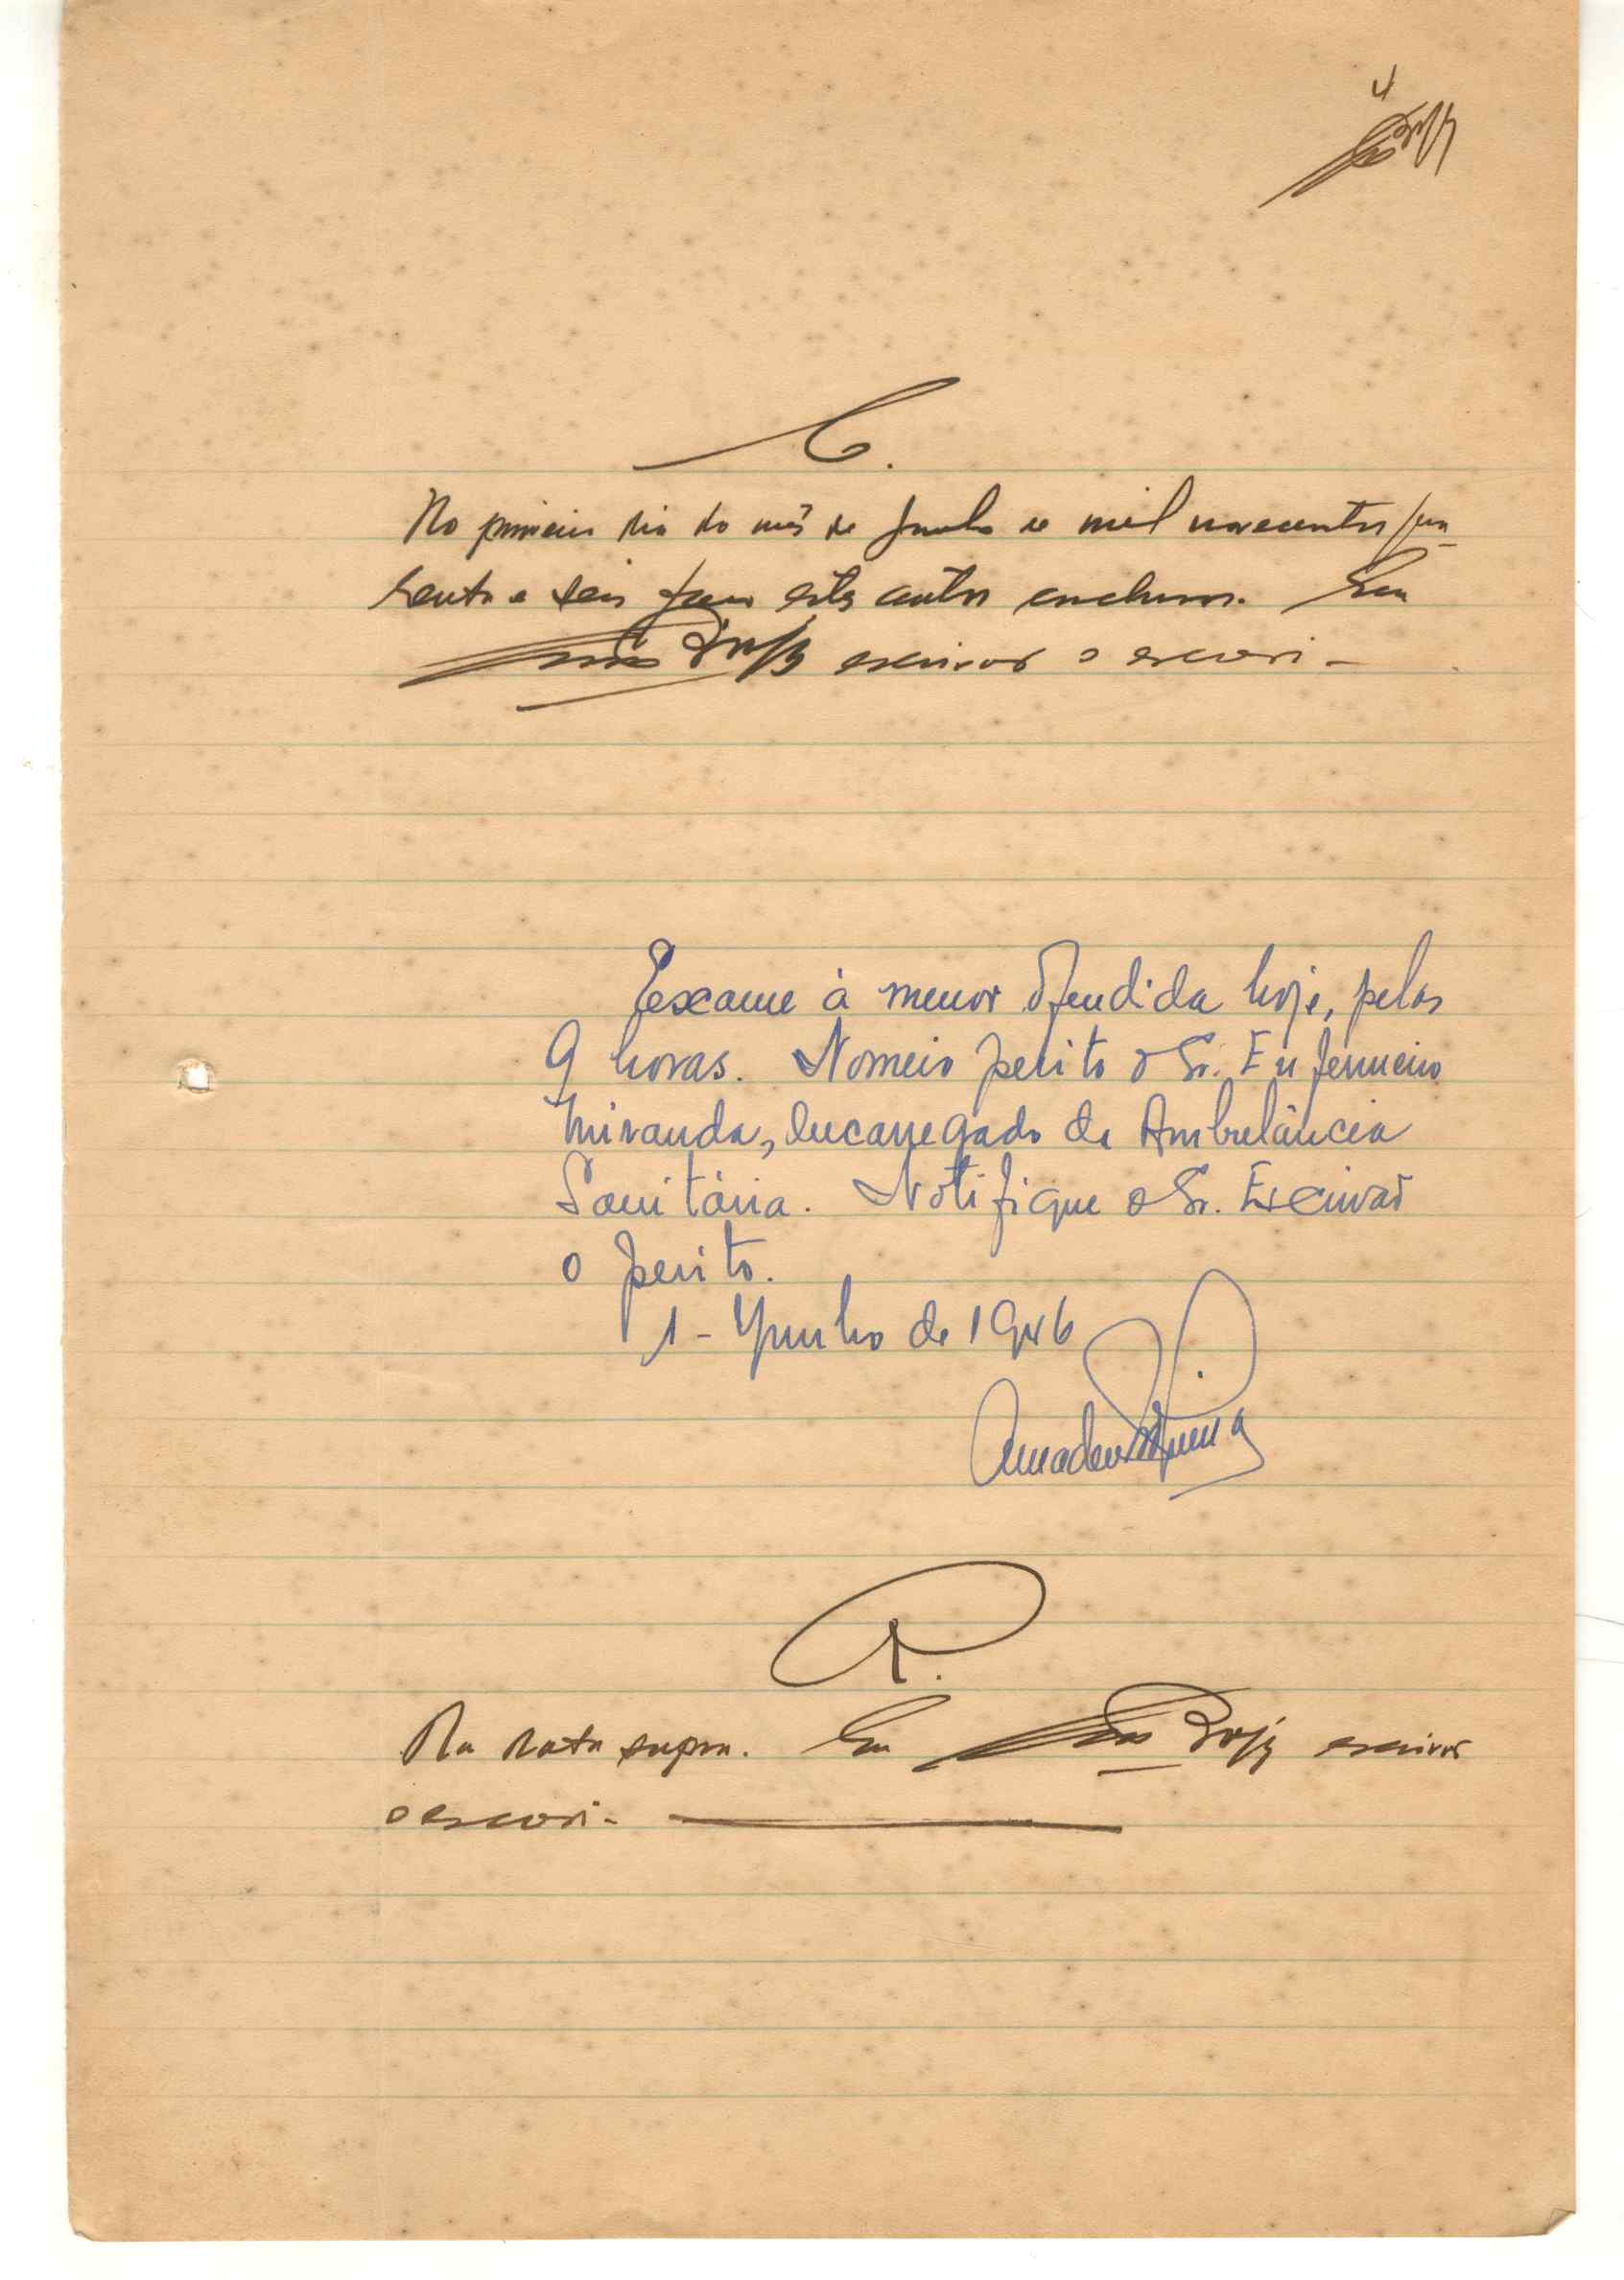 4
C.
No primeiro dia do mês de Junho de mil novecentos qua-
renta e seis faço estes autos conclusos. Eu
escrivão o escrevi -
Exame à menor ofendida hoje, pelas
9 horas. Nomeio perito o Sr. Enfermeiro
Miranda, Encarregado da Ambulância
Sanitária. Notifique o Sr. Escrivão
o perito.
1 - Junho de 1946
Amadeu
R.
Na data supra. Eu escrivão
o escrevi -